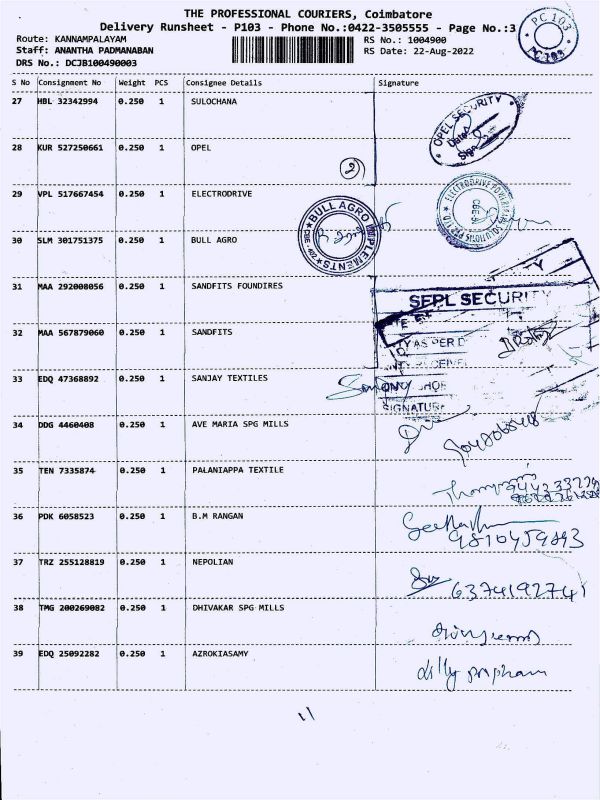 THE PROFESSIONAL COURIERS, Coimbatore
Delivery Runsheet - P103 - Phone No.:0422-3505555 - Page No.:3
Route: KANNAMPALAYAM RS No.: 1004900
Staff: ANANTHA PADMANABAN RS Date: 22-Aug-2022
DRS No.: DCJB100490003
PC 103
PC 103
S No Consignment No Weight PCS Consignee Details Signature
27 HBL 32342994 0.250 1 SULOCHANA
OPEL SECURITY
Date
Sign
28 KUR 527250661 0.250 1 OPEL
29 VPL 517667454 0.250 1 ELECTRODRIVE
BULL AGRO IMPLEMENTS
30 SLM 301751375 0.250 1 BULL AGRO
31 MAA 292008056 0.250 1 SANDFITS FOUNDIRES
SEPL SECURITY
32 MAA 567879060 0.250 1 SANDFITS
33 EDQ 47368892 0.250 1 SANJAY TEXTILES
SIGNATURE
34 DDG 4460408 0.250 1 AVE MARIA SPG MILLS
35 TEN 7335874 0.250 1 PALANIAPPA TEXTILE
36 PDK 6058523 0.250 1 B.M RANGAN
9810459893
37 TRZ 255128819 0.250 1 NEPOLIAN
6374192741
38 TMG 200269082 0.250 1 DHIVAKAR SPG MILLS
39 EDQ 25092282 0.250 1 AZROKIASAMY